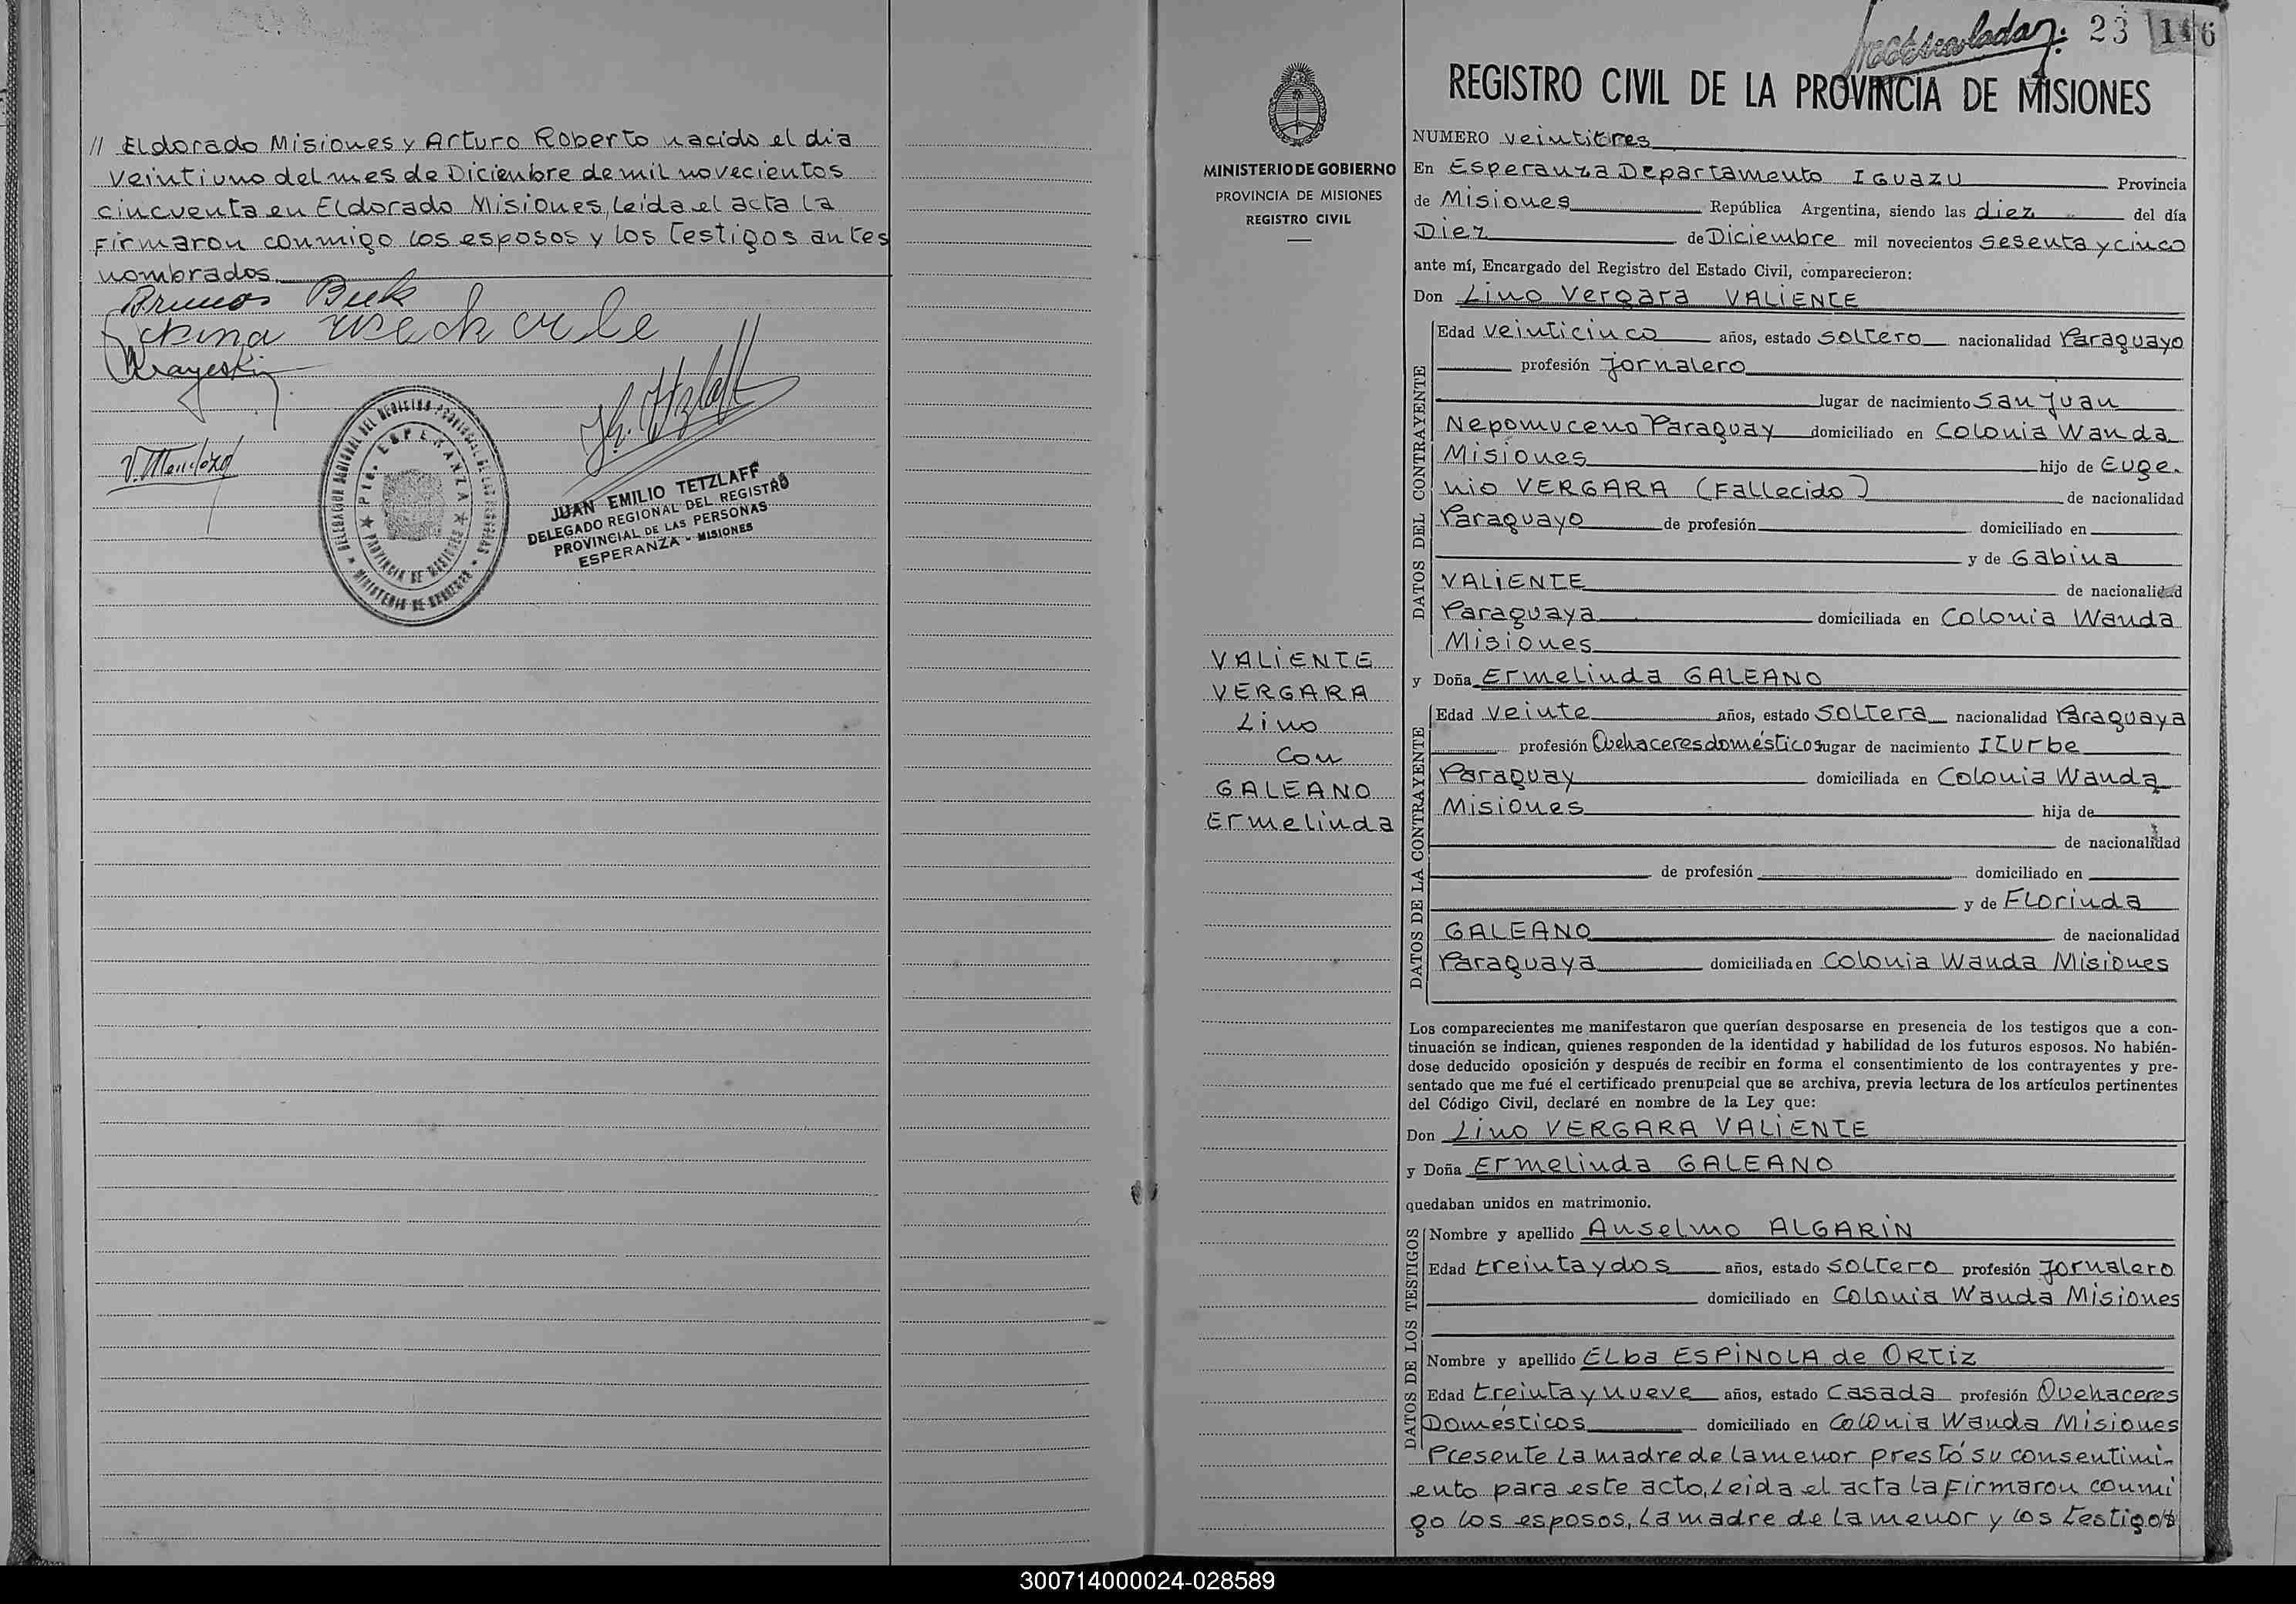 // Eldorado Misiones y Arturo Roberto nacido el dia
veintiuno del mes de Diciembre de mil novecientos
cincuenta en Eldorado Misiones, Leida el acta la
Firmaron conmigo los esposos y los testigos antes
nombrados.
V. Mendoza
Pto. ESPERANZA
PROVINCIA DE MISIONES
JUAN EMILIO TETZLAFF
DELEGADO REGIONAL DEL REGISTRO
PROVINCIAL DE LAS PERSONAS
ESPERANZA - MISIONES
MINISTERIO DE GOBIERNO
PROVINCIA DE MISIONES
REGISTRO CIVIL
VALIENTE
VERGARA
Lino
Con
GALEANO
Ermelinda
23
REGISTRO CIVIL DE LA PROVINCIA DE MISIONES
NUMERO veintitres
En Esperanza Departamento IGUAZU Provincia
de Misiones República Argentina, siendo las diez del día
Diez de Diciembre mil novecientos sesenta y cinco
ante mí, Encargado del Registro del Estado Civil, comparecieron:
Don Lino Vergara VALIENTE
DATOS DEL CONTRAYENTE
Edad veinticinco años, estado soltero nacionalidad Paraguayo
profesión Jornalero
lugar de nacimiento San Juan
Nepomuceno Paraguay domiciliado en Colonia Wanda
Misiones hijo de Euge-
nio VERGARA (Fallecido) de nacionalidad
Paraguayo de profesión domiciliado en
y de Gabina
VALIENTE de nacionalidad
Paraguaya domiciliada en Colonia Wanda
Misiones
y Doña Ermelinda GALEANO
DATOS DE LA CONTRAYENTE
Edad veinte años, estado soltera nacionalidad Paraguaya
profesión Quehaceres domésticos lugar de nacimiento Iturbe
Paraguay domiciliada en Colonia Wanda
Misiones hija de
de nacionalidad
de profesión domiciliado en
y de Florinda
GALEANO de nacionalidad
Paraguaya domiciliada en Colonia Wanda Misiones
Los comparecientes me manifestaron que querían desposarse en presencia de los testigos que a con-
tinuación se indican, quienes responden de la identidad y habilidad de los futuros esposos. No habién-
dose deducido oposición y después de recibir en forma el consentimiento de los contrayentes y pre-
sentado que me fué el certificado prenupcial que se archiva, previa lectura de los artículos pertinentes
del Código Civil, declaré en nombre de la Ley que:
Don Lino VERGARA VALIENTE
y Doña Ermelinda GALEANO
quedaban unidos en matrimonio.
DATOS DE LOS TESTIGOS
Nombre y apellido Anselmo ALGARIN
Edad treinta y dos años, estado soltero profesión Jornalero
domiciliado en Colonia Wanda Misiones
Nombre y apellido Elba ESPINOLA de ORTIZ
Edad treinta y nueve años, estado Casada profesión Quehaceres
Domésticos domiciliado en Colonia Wanda Misiones
Presente la madre de la menor prestó su consentimi-
ento para este acto, Leida el acta la Firmaron conmi
go los esposos, la madre de la menor y los testigos
300714000024-028589